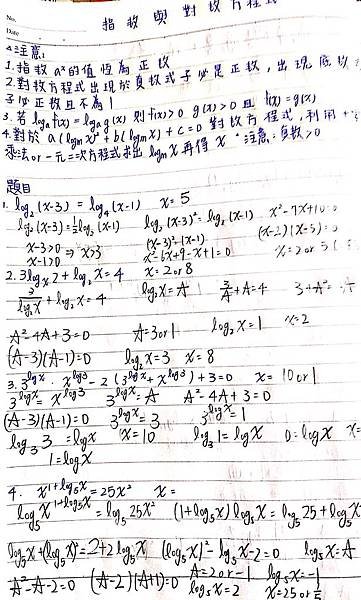 No.
Date
指數與對數方程式
注意:
1. 指數 aˣ的值恆為正數
2. 對數方程式出現於真數式子必是正數,出現底數
子必正數且不為1
3. 若 logₐf(x) = logₐg(x) 則 f(x)>0 g(x)>0 且 f(x)=g(x)
4. 對於 a(logₘx)²+b(logₘx)+c=0 對數方程式,利用十
乘法or一元二次方程式求出 logₘx 再得 x 注意:真數>0
題目
1. log₂(x-3) = log₄(x-1) x=5
log₂(x-3)=½log₂(x-1) log₂(x-3)²=log₂(x-1) x²-7x+10=0
x-3>0 ⇒ x>3 (x-3)²=(x-1) (x-2)(x-5)=0
x-1>0 x²-6x+9-x+1=0 x=2 or 5
2. 3logₓ2+log₂x=4 x=2or8
3/log₂x+log₂x=4 log₂x=A 3/A+A=4 3+A²=
A²-4A+3=0 A=3or1 log₂x=1 x=2
(A-3)(A-1)=0 log₂x=3 x=8
3. 3^logx · x^log3 - 2(3^logx+x^log3)+3=0 x=10or1
3^logx=x^log3 3^logx=A A²-4A+3=0
(A-3)(A-1)=0 3^logx=3 3^logx=1
log₃3=logx x=10 log₃1=logx 0=logx x=
1=logx
4. x^(1+log₅x)=25x² x=
log₅x^(1+log₅x)=log₅25x² (1+log₅x)log₅x=log₅25+log₅x
log₅x+(log₅x)²=2+2log₅x (log₅x)²-log₅x-2=0 log₅x=A
A²-A-2=0 (A-2)(A+1)=0 A=2or-1 log₅x=-1
log₅x=2 x=25or